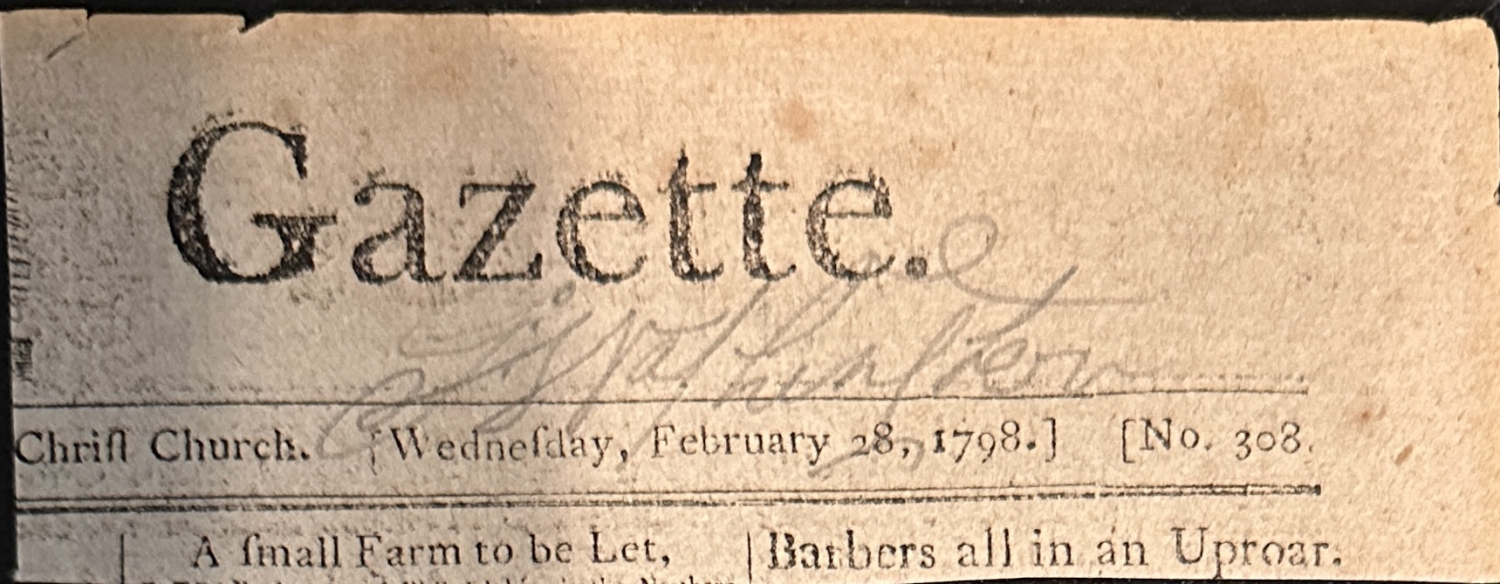 Gazette.
Chriſt Church. [Wedneſday, February 28, 1798.] [No. 308.
A ſmall Farm to be Let,
Barbers all in an Uproar.